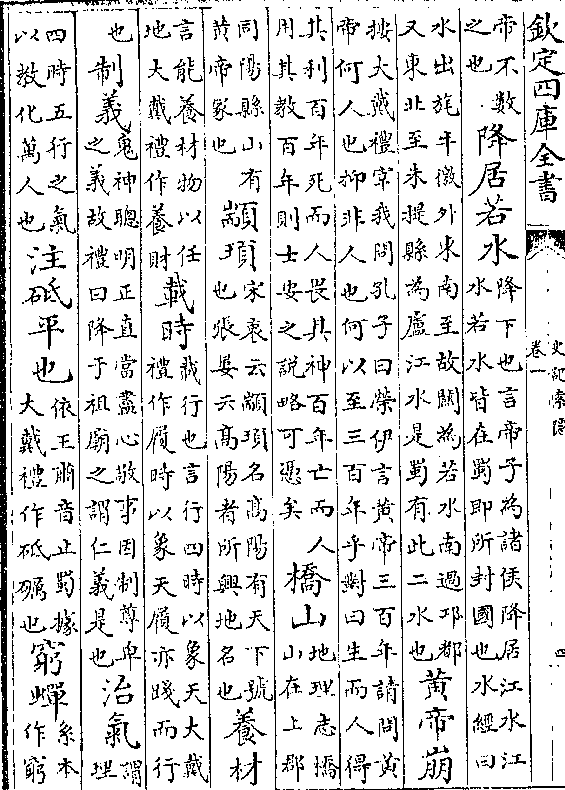 欽定四庫全書
史記索隱
卷一
四
帝不數
之也
降居若水
降下也言帝子為諸侯降居江水江
水若水皆在蜀即所封國也水經曰
水出旄牛徼外東南至故關為若水南過邛都
又東北至朱提縣為盧江水是蜀有此二水也
黃帝崩
按大戴禮宰我問孔子曰榮伊言黃帝三百年請問黃
帝何人也抑非人也何以至三百年乎對曰生而人得
其利百年死而人畏其神百年亡而人
用其教百年則士安之說略可憑矣
橋山
地理志橋
山在上郡
同陽縣山有
黃帝冢也
顓頊
宋衷云顓頊名高陽有天下號
也張晏云高陽者所興地名也
養材
言能養材物以任
地大戴禮作養財
載時
載行也言行四時以象天大戴
禮作履時以象天履亦踐而行
也
制義
鬼神聰明正直當盡心敬事因制尊卑
之義故禮曰降于祖廟之謂仁義是也
治氣
謂
理
四時五行之氣
以教化萬人也
注砥平也
依王肅音止蜀據
大戴禮作砥礪也
窮蟬
系本
作窮